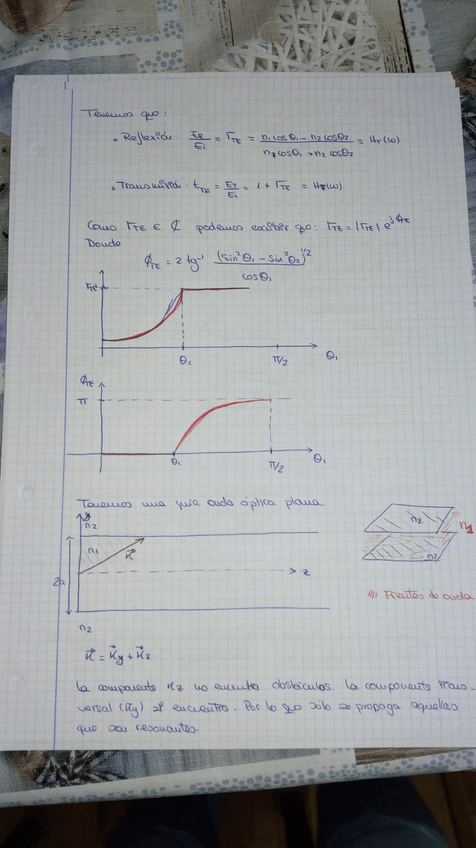 Tenemos que:
• Reflexión: Er/Ei = Γ_TE = (n₁ cosθ₁ - n₂ cosθ₂)/(n₁ cosθ₁ + n₂ cosθ₂) = Hr(ω)
• Transmisión: t_TE = Et/Ei = 1 + Γ_TE = Ht(ω)
Como Γ_TE ∈ ℂ podemos escribir que: Γ_TE = |Γ_TE| e^jϕ_TE
Donde
ϕ_TE = 2 tg⁻¹ (sin²θ₁ - sin²θ₂)^1/2 / cosθ₁
Γ_TE
θc π/2 θ₁
ϕ_TE
π
θc π/2 θ₁
Tenemos una guía onda óptica plana
n₂
n₂ n₁
n₁
K
2a z
n₂
//// Frentes de onda
n₂
K = Ky + Kz
La componente Kz no encuentra obstáculos. La componente trans-
versal (Ky) sí encuentra. Por lo que sólo se propaga aquellas
que son resonantes.